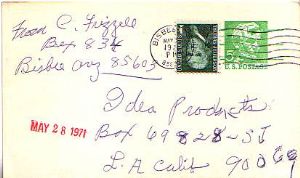 From C. Frizzell
Box 834
Bisbee Arz 85603
BISBEE
MAY
U.S. POSTAGE
MAY 28 1971
Idea Products
Box 69828-ST
L.A Calif 90069